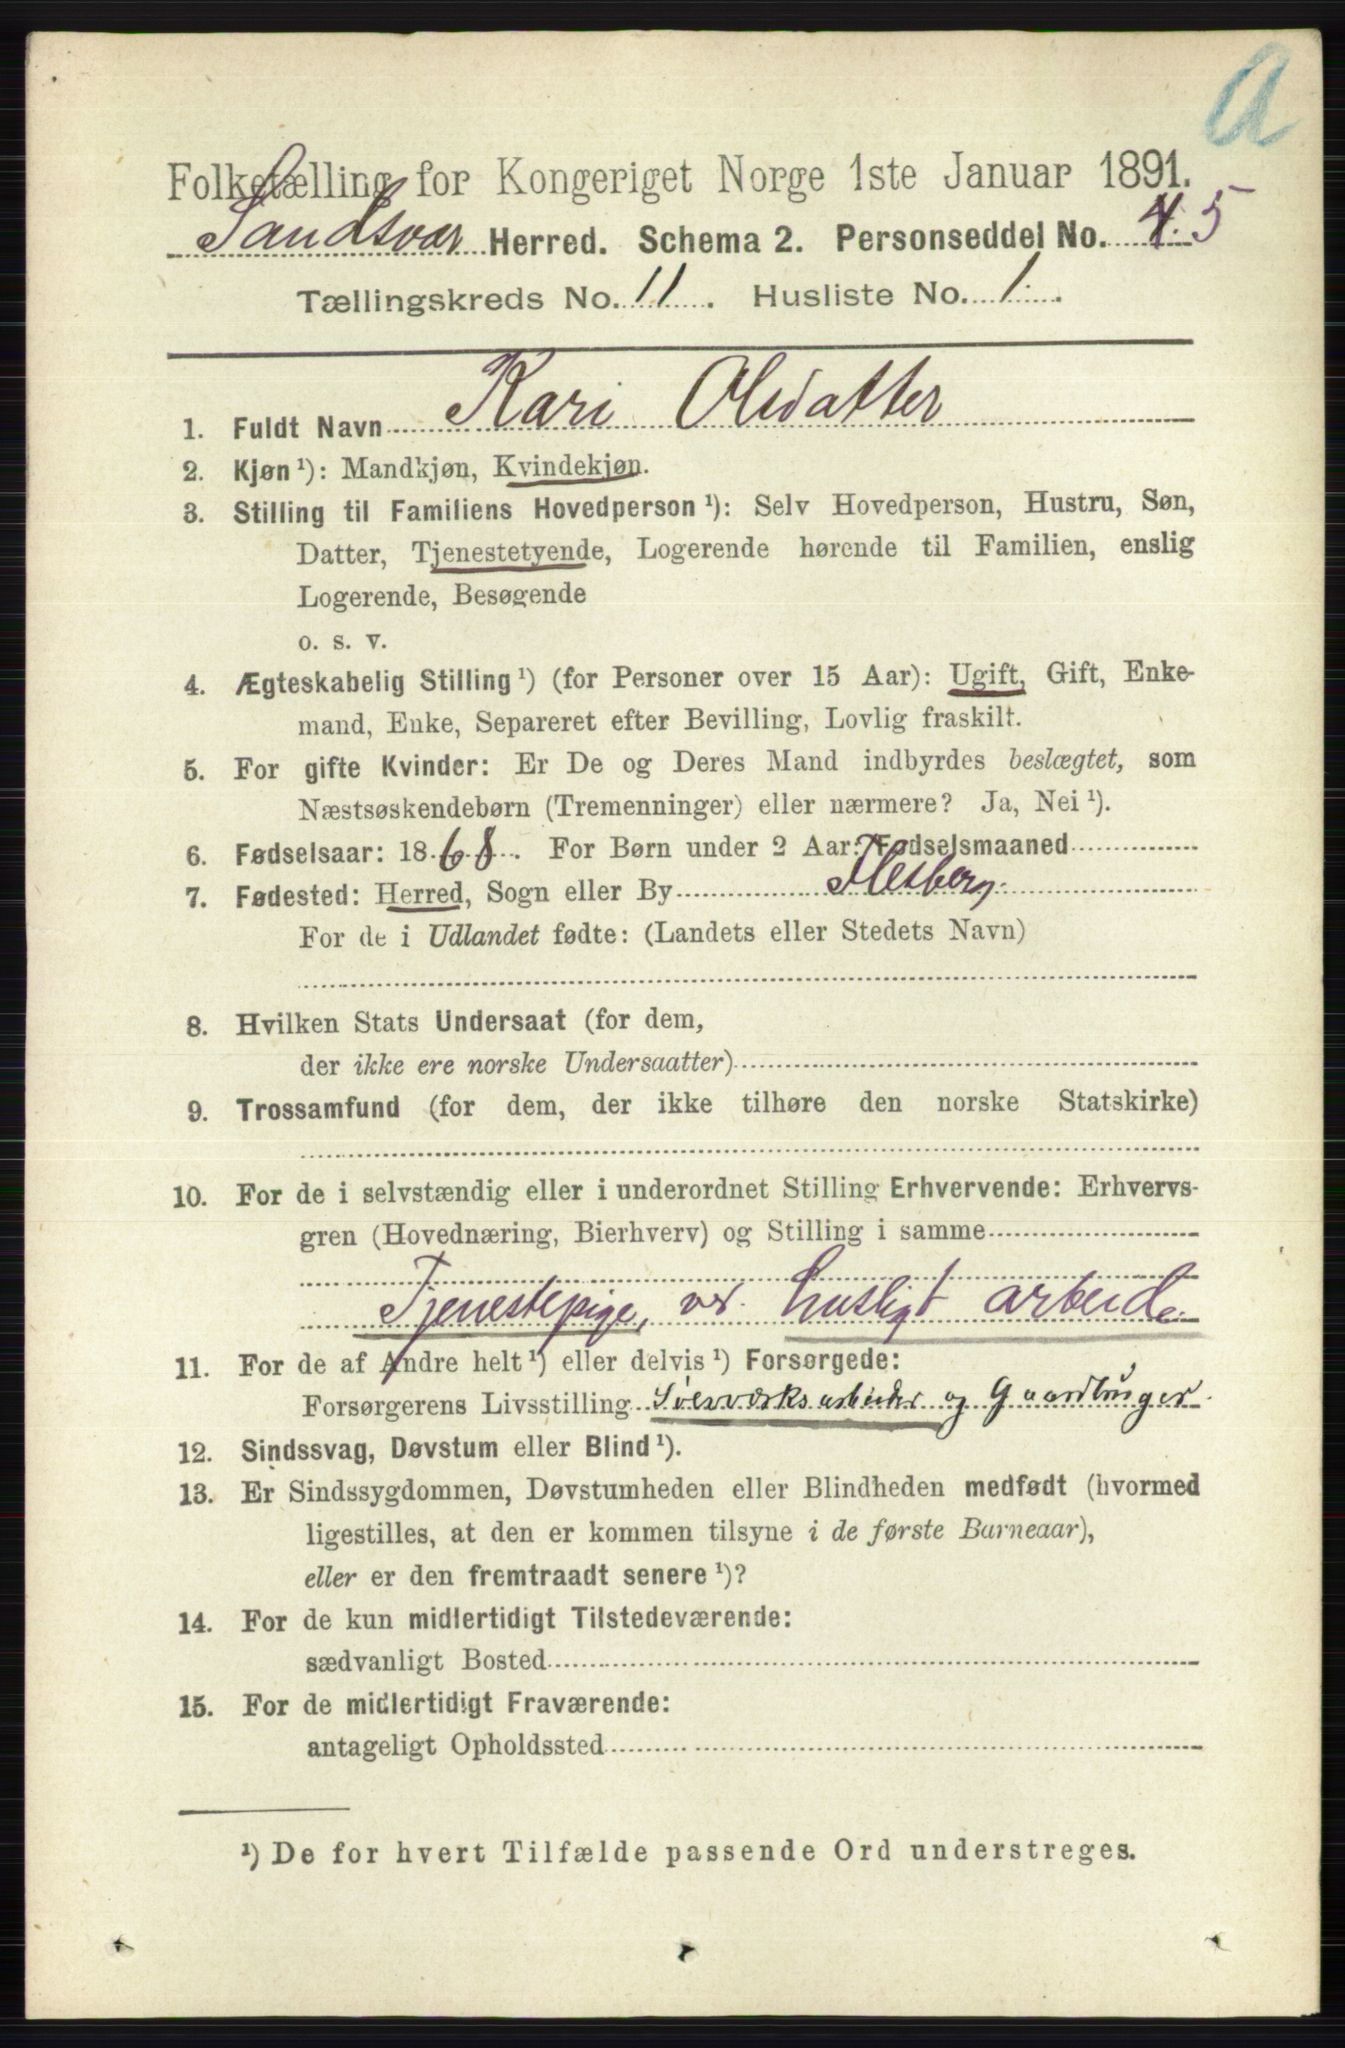 A
Folketælling for Kongeriget Norge 1ste Januar 1891.
Sandsvær Herred. Schema 2. Personseddel No. 4. 5
Tællingskreds No. 11. Husliste No. 1.
1. Fuldt Navn Kari Olsdatter
2. Kjøn¹): Mandkjøn, Kvindekjøn.
3. Stilling til Familiens Hovedperson¹): Selv Hovedperson, Hustru, Søn,
Datter, Tjenestetyende, Logerende hørende til Familien, enslig
Logerende, Besøgende
o. s. v.
4. Ægteskabelig Stilling¹) (for Personer over 15 Aar): Ugift, Gift, Enke-
mand, Enke, Separeret efter Bevilling, Lovlig fraskilt.
5. For gifte Kvinder: Er De og Deres Mand indbyrdes beslægtet, som
Næstsøskendebørn (Tremenninger) eller nærmere? Ja, Nei¹).
6. Fødselsaar: 1868. For Børn under 2 Aar: Fødselsmaaned
7. Fødested: Herred, Sogn eller By Flesberg.
For de i Udlandet fødte: (Landets eller Stedets Navn)
8. Hvilken Stats Undersaat (for dem,
der ikke ere norske Undersaatter)
9. Trossamfund (for dem, der ikke tilhøre den norske Statskirke)
10. For de i selvstændig eller i underordnet Stilling Erhvervende: Erhvervs-
gren (Hovednæring, Bierhverv) og Stilling i samme
Tjenestepige, ved husligt arbeide
11. For de af Andre helt¹) eller delvis¹) Forsørgede:
Forsørgerens Livsstilling Sølvværksarbeider og Gaardbruger.
12. Sindssvag, Døvstum eller Blind¹).
13. Er Sindssygdommen, Døvstumheden eller Blindheden medfødt (hvormed
ligestilles, at den er kommen tilsyne i de første Barneaar),
eller er den fremtraadt senere¹)?
14. For de kun midlertidigt Tilstedeværende:
sædvanligt Bosted
15. For de midlertidigt Fraværende:
antageligt Opholdssted
¹) De for hvert Tilfælde passende Ord understreges.